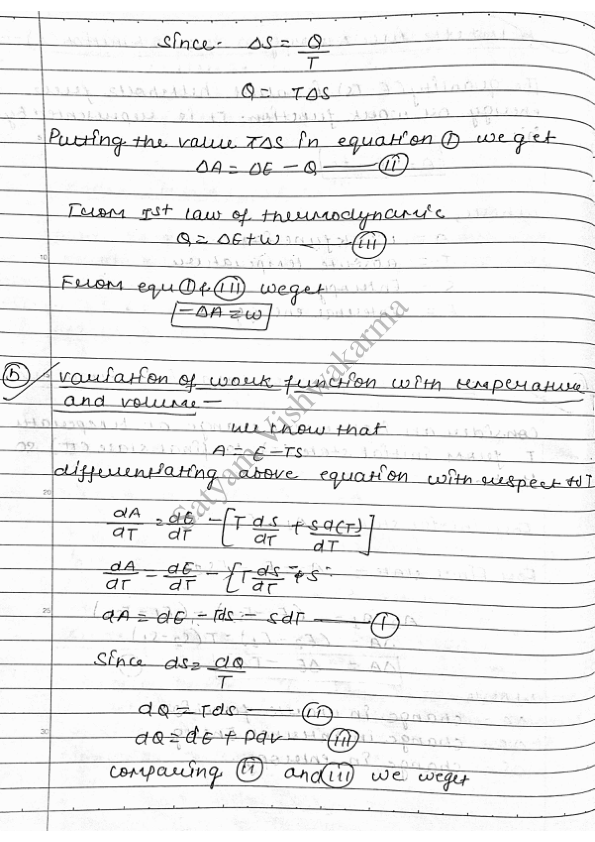 Since ΔS = Q/T
Q = TΔS
Putting the value TΔS in equation ① we get
ΔA = ΔE - Q —— (ii)
From Ist law of thermodynamic
Q = ΔE + W —— (iii)
From equ ① & (iii) we get
-ΔA = W
(5) Variation of work function with temperature
and volume —
we know that
A = E - TS
differentiating above equation with respect to T
dA/dT = dE/dT - [T ds/dT + S d(T)/dT]
dA/dT = dE/dT - {T ds/dT + S
dA = dE - Tds - SdT —— (I)
Since ds = dQ/T
dQ = Tds —— (ii)
dQ = dE + Pdv —— (iii)
comparing (ii) and (iii) we weget
Satyam Vishwakarma